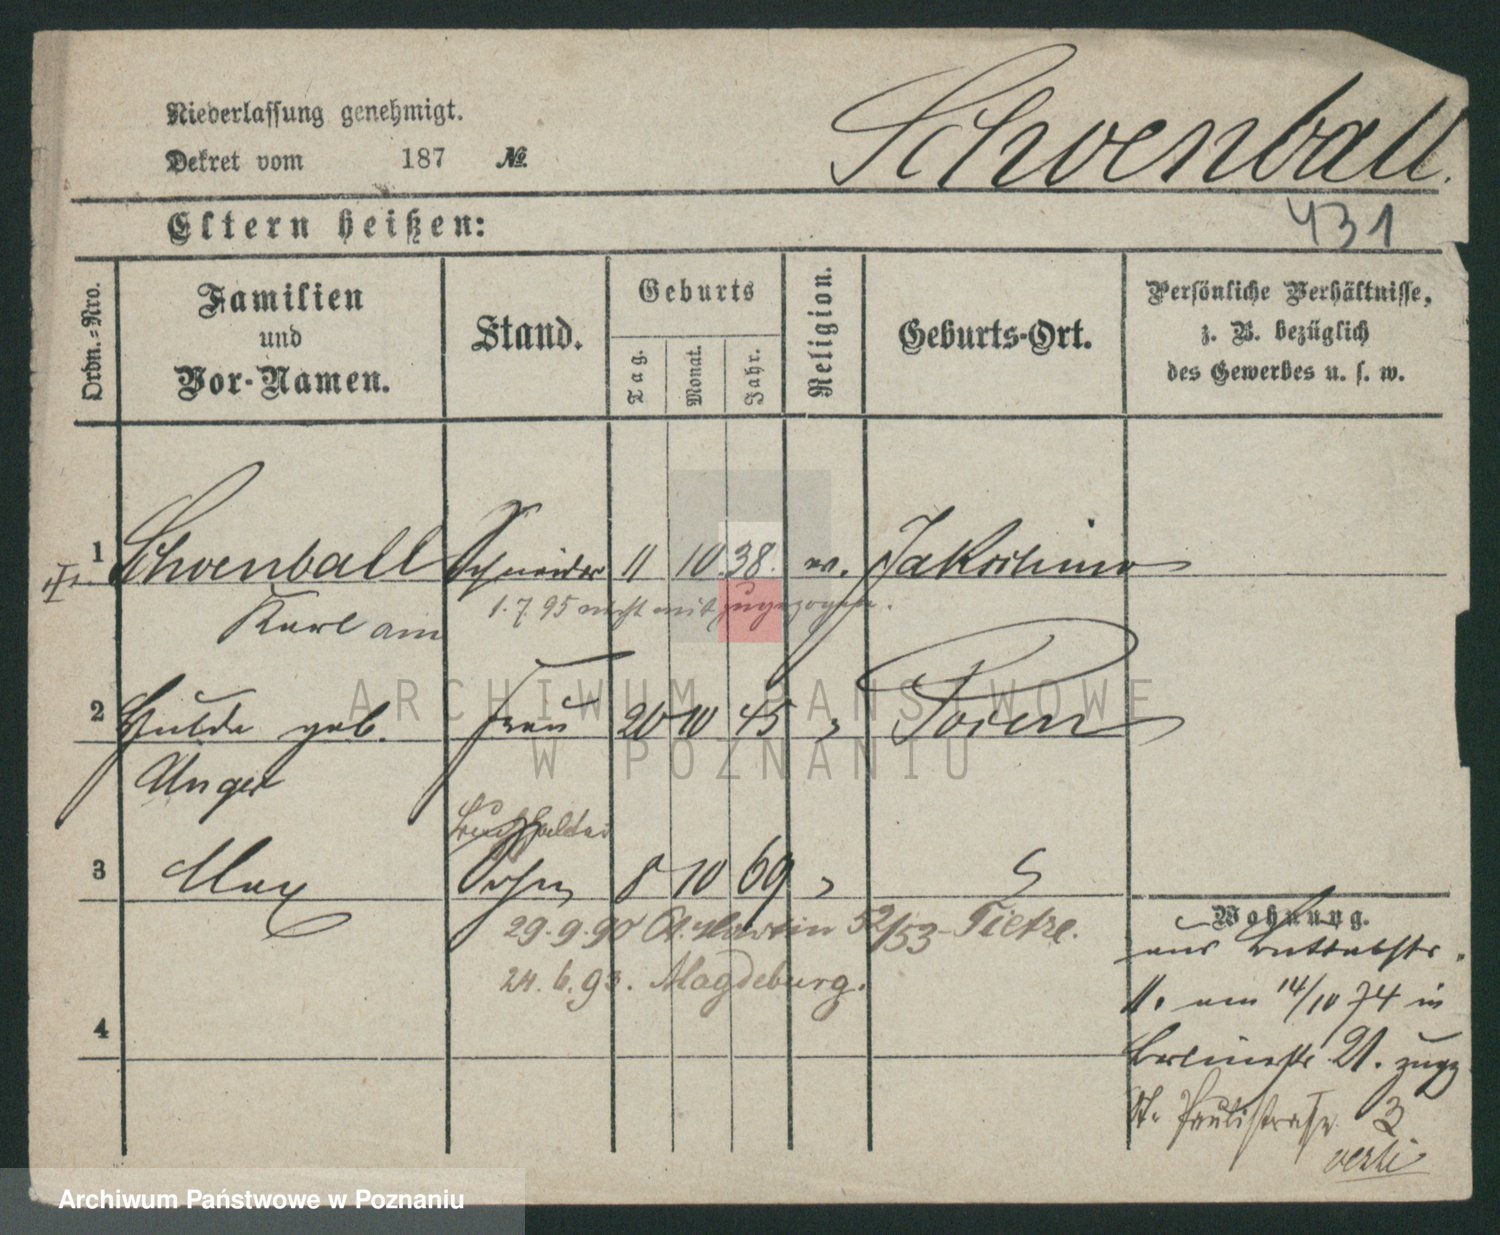 Niederlassung genehmigt.
Dekret vom 187 №
Schoenball.
431
Eltern heißen:
Ordn.-Nro.
Familien
und
Vor-Namen.
Stand.
Geburts
Tag.
Monat.
Jahr.
Religion.
Geburts-Ort.
Persönliche Verhältnisse,
z. B. bezüglich
des Gewerbes u. s. w.
1 Schoenball Schneider 11 10 38.
Karl am
1. 7. 95 nicht mit zugezogen.
2 Hulda geb. Frau 20 10 45 Posen
Unger
Buchhalter
3 Max Sohn 8 10 69
29. 9. 90 St. Martin 52/53 Tietze.
24. 6. 93. Magdeburg.
4
Wohnung.
aus
11. am 14/10 74 in
Berlinerstr. 21. zugz
St. Paulistrasse 3
ARCHIWUM PAŃSTWOWE
W POZNANIU
Archiwum Państwowe w Poznaniu